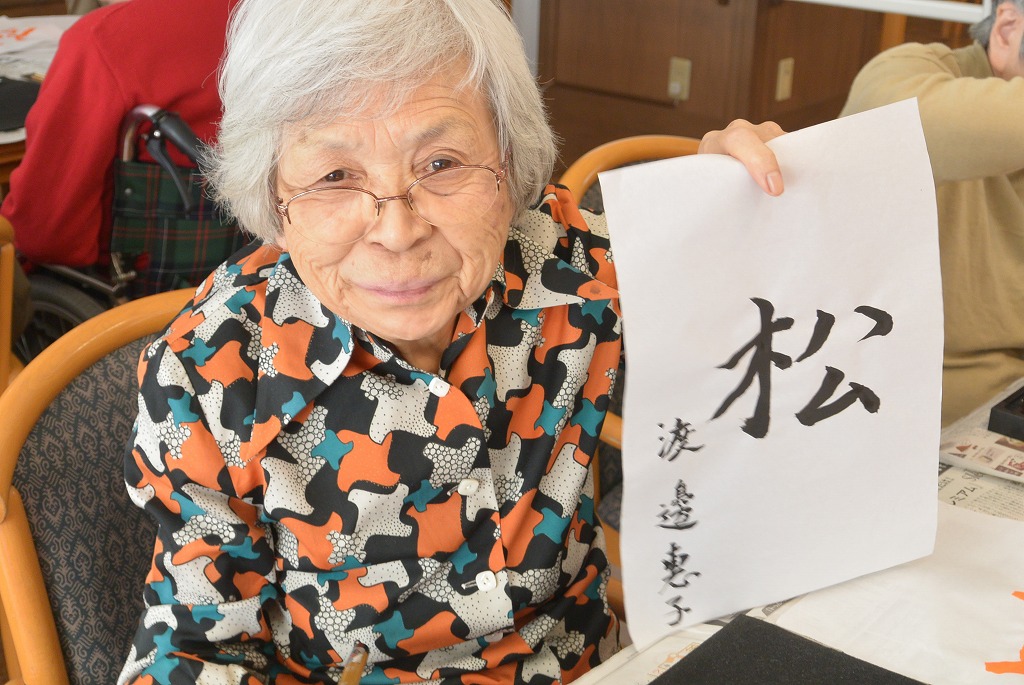 松
渡邉恵子